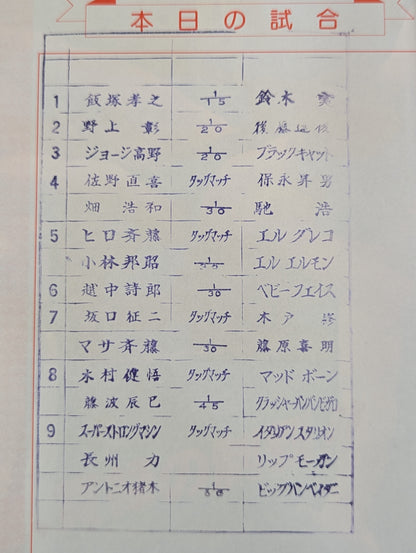 本日の試合
1 飯塚孝之 1/15 鈴木 実
2 野上 彰 1/20 後藤達俊
3 ジョージ高野 1/20 ブラックキャット
4 佐野直喜 タッグマッチ 保永昇男
畑 浩和 1/30 馳 浩
5 ヒロ斉藤 タッグマッチ エル グレコ
小林邦昭 エル エルモン
6 越中詩郎 1/30 ベビーフェイス
7 坂口征二 タッグマッチ 木戸 修
マサ斉藤 1/30 藤原喜明
8 木村健悟 タッグマッチ マッド ボーン
藤波辰巳 1/45 クラッシャーバンバンビガロ
9 スーパーストロングマシン タッグマッチ イタリアン スタリオン
長州 力 リップ モーガン
アントニオ猪木 ビッグバンベイダー